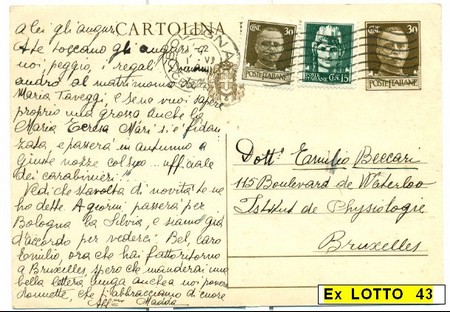 a lei gli auguri
CARTOLINA
noi peggio, i regali
andrò al matrimonio
Maria Taveggi, e se ne vuoi sapere
proprio una grossa anche la
Maria Teresa Mari si è fidan
zata, e passerà in autunno a
giuste nozze col suo... ufficiale
dei carabinieri!!
Vedi che stavolta di novità te ne
ho dette. A giorni passerà per
Bologna la Silvia, e siamo già
d'accordo per vederci. Bel, caro
Emilio, ora che hai fatto ritorno
a Bruxelles, spero che manderai una
bella lettera lunga anche a noi povere
donnette, che ti abbracciamo di cuore
30
CENT.
POSTE ITALIANE
CENT. 15
30
CENT.
POSTE ITALIANE
Dott. Emilio Beccari
115 Boulevard de Waterloo
Istitut de Physiologie
Bruxelles
Ex LOTTO 43